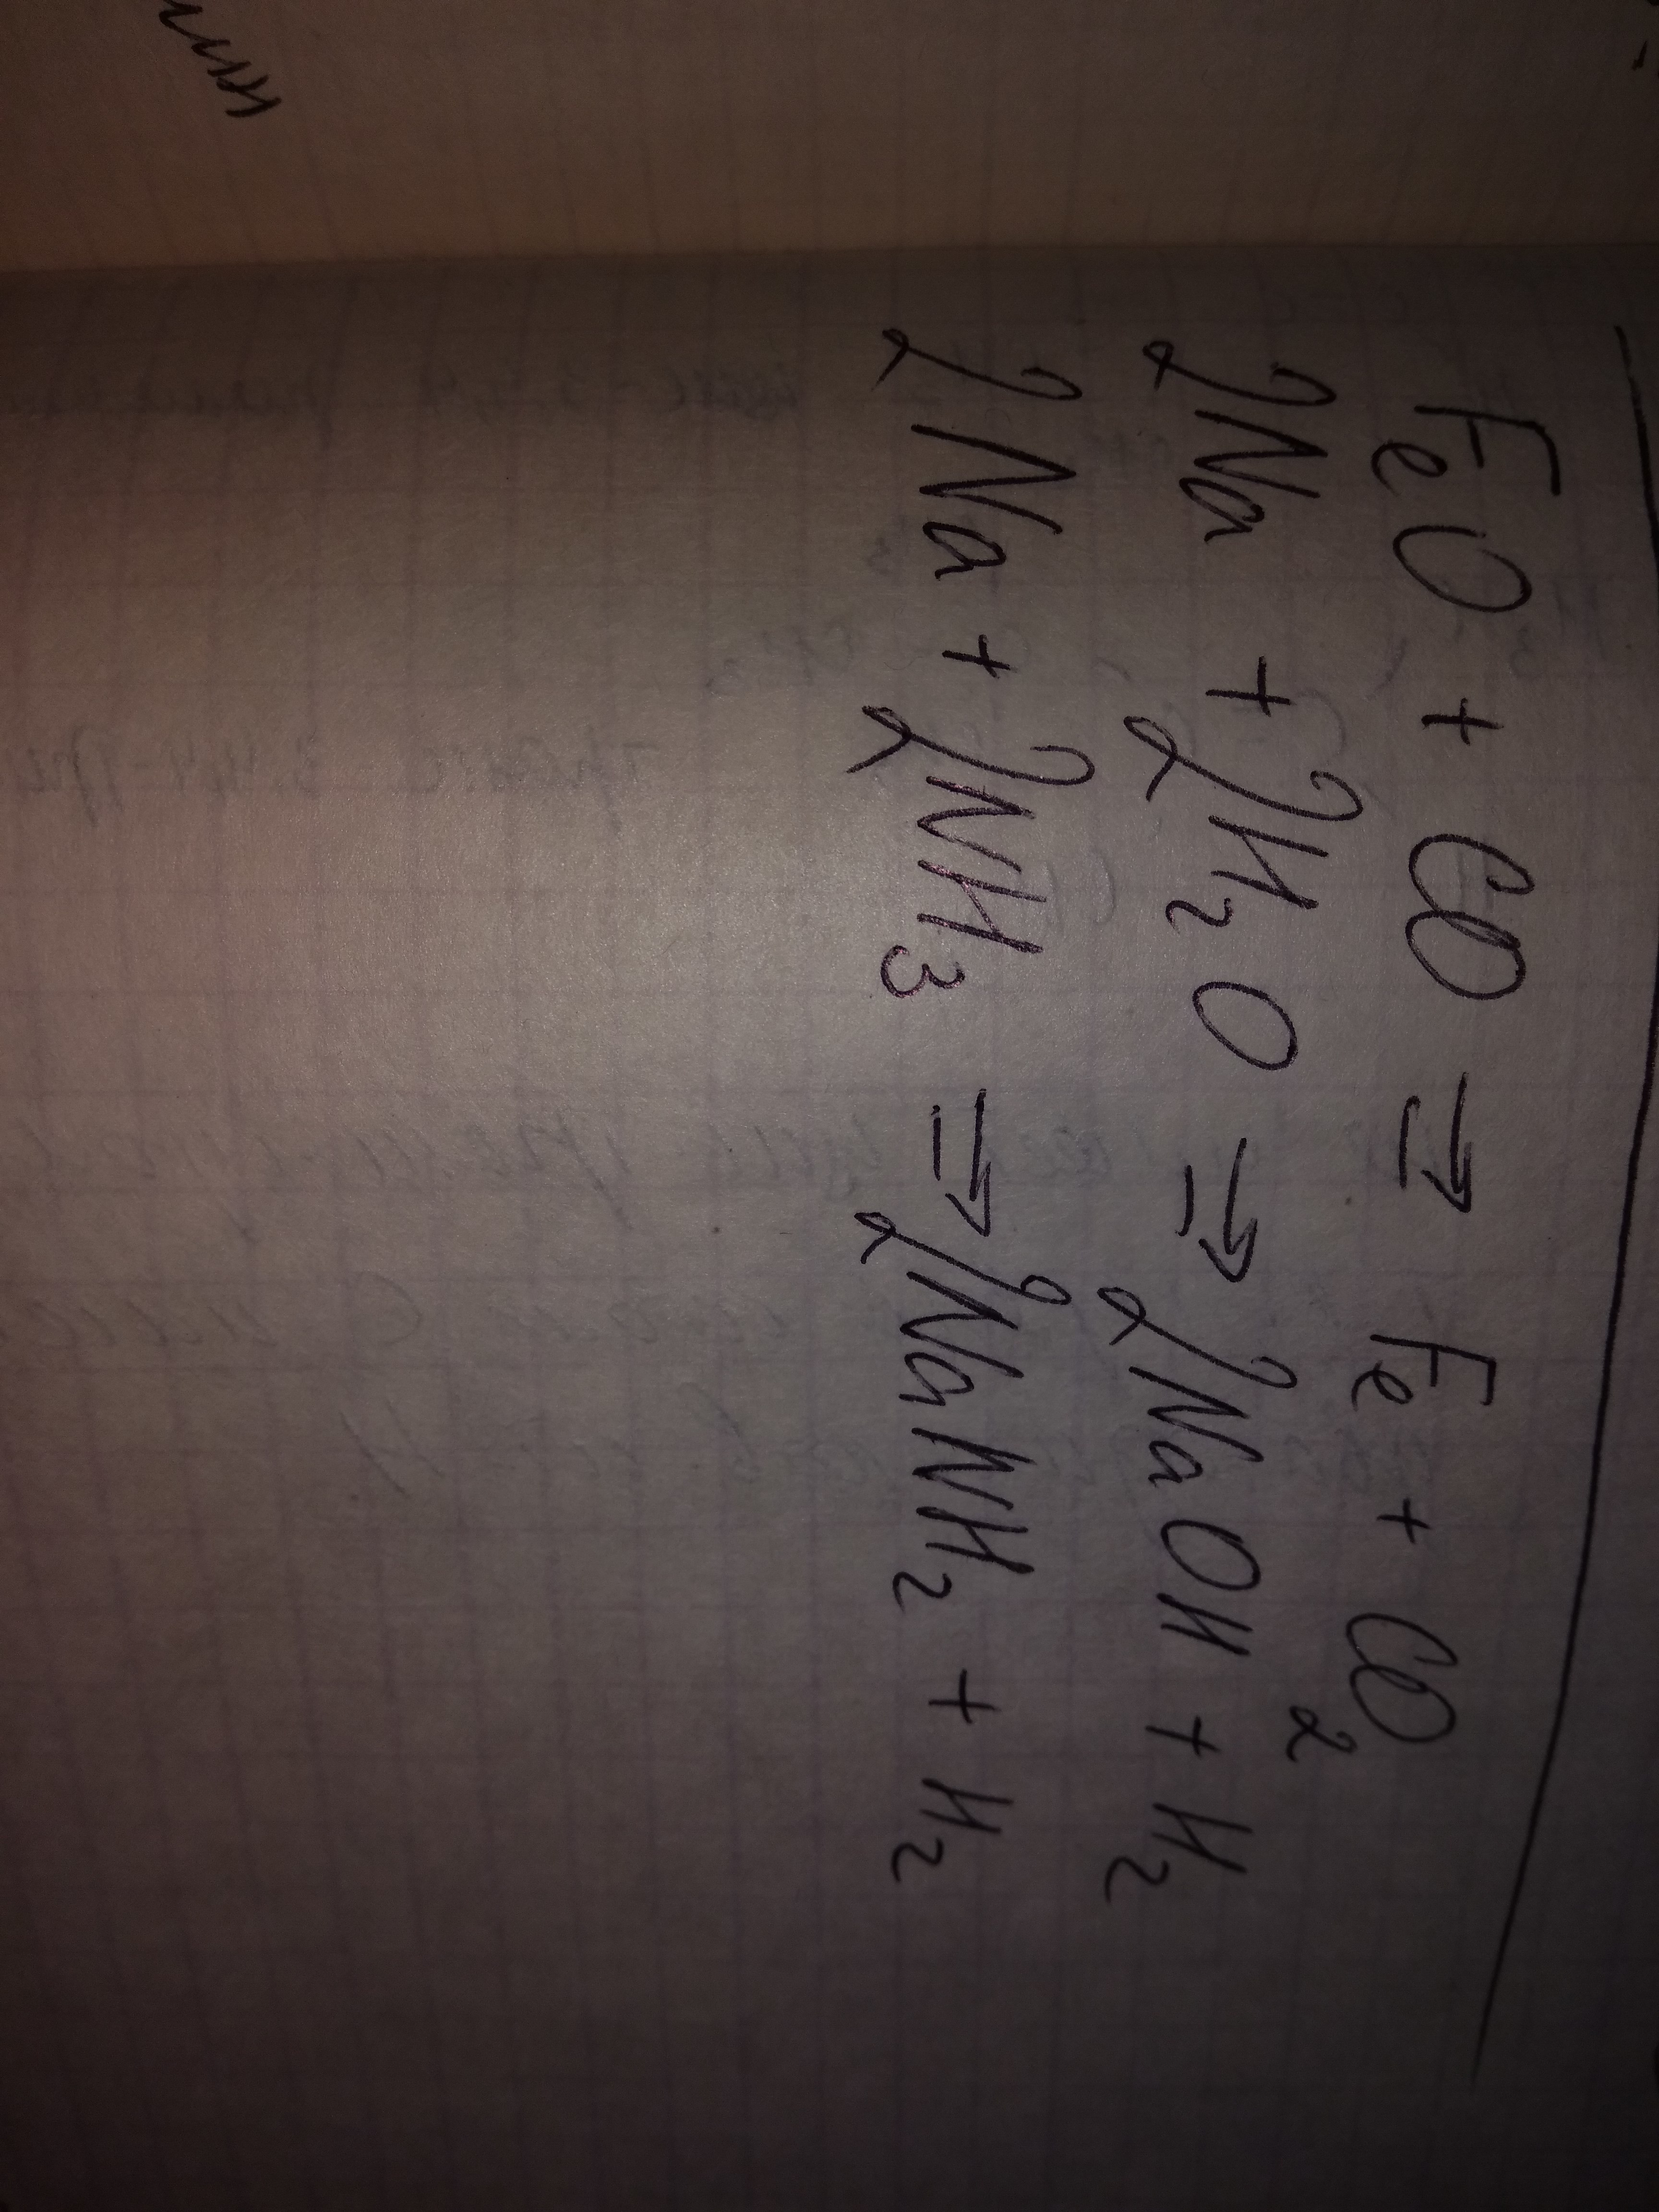 FeO + CO ⇒ Fe + CO₂
2Na + 2H₂O ⇒ 2NaOH + H₂
2Na + 2NH₃ ⇒ 2NaNH₂ + H₂